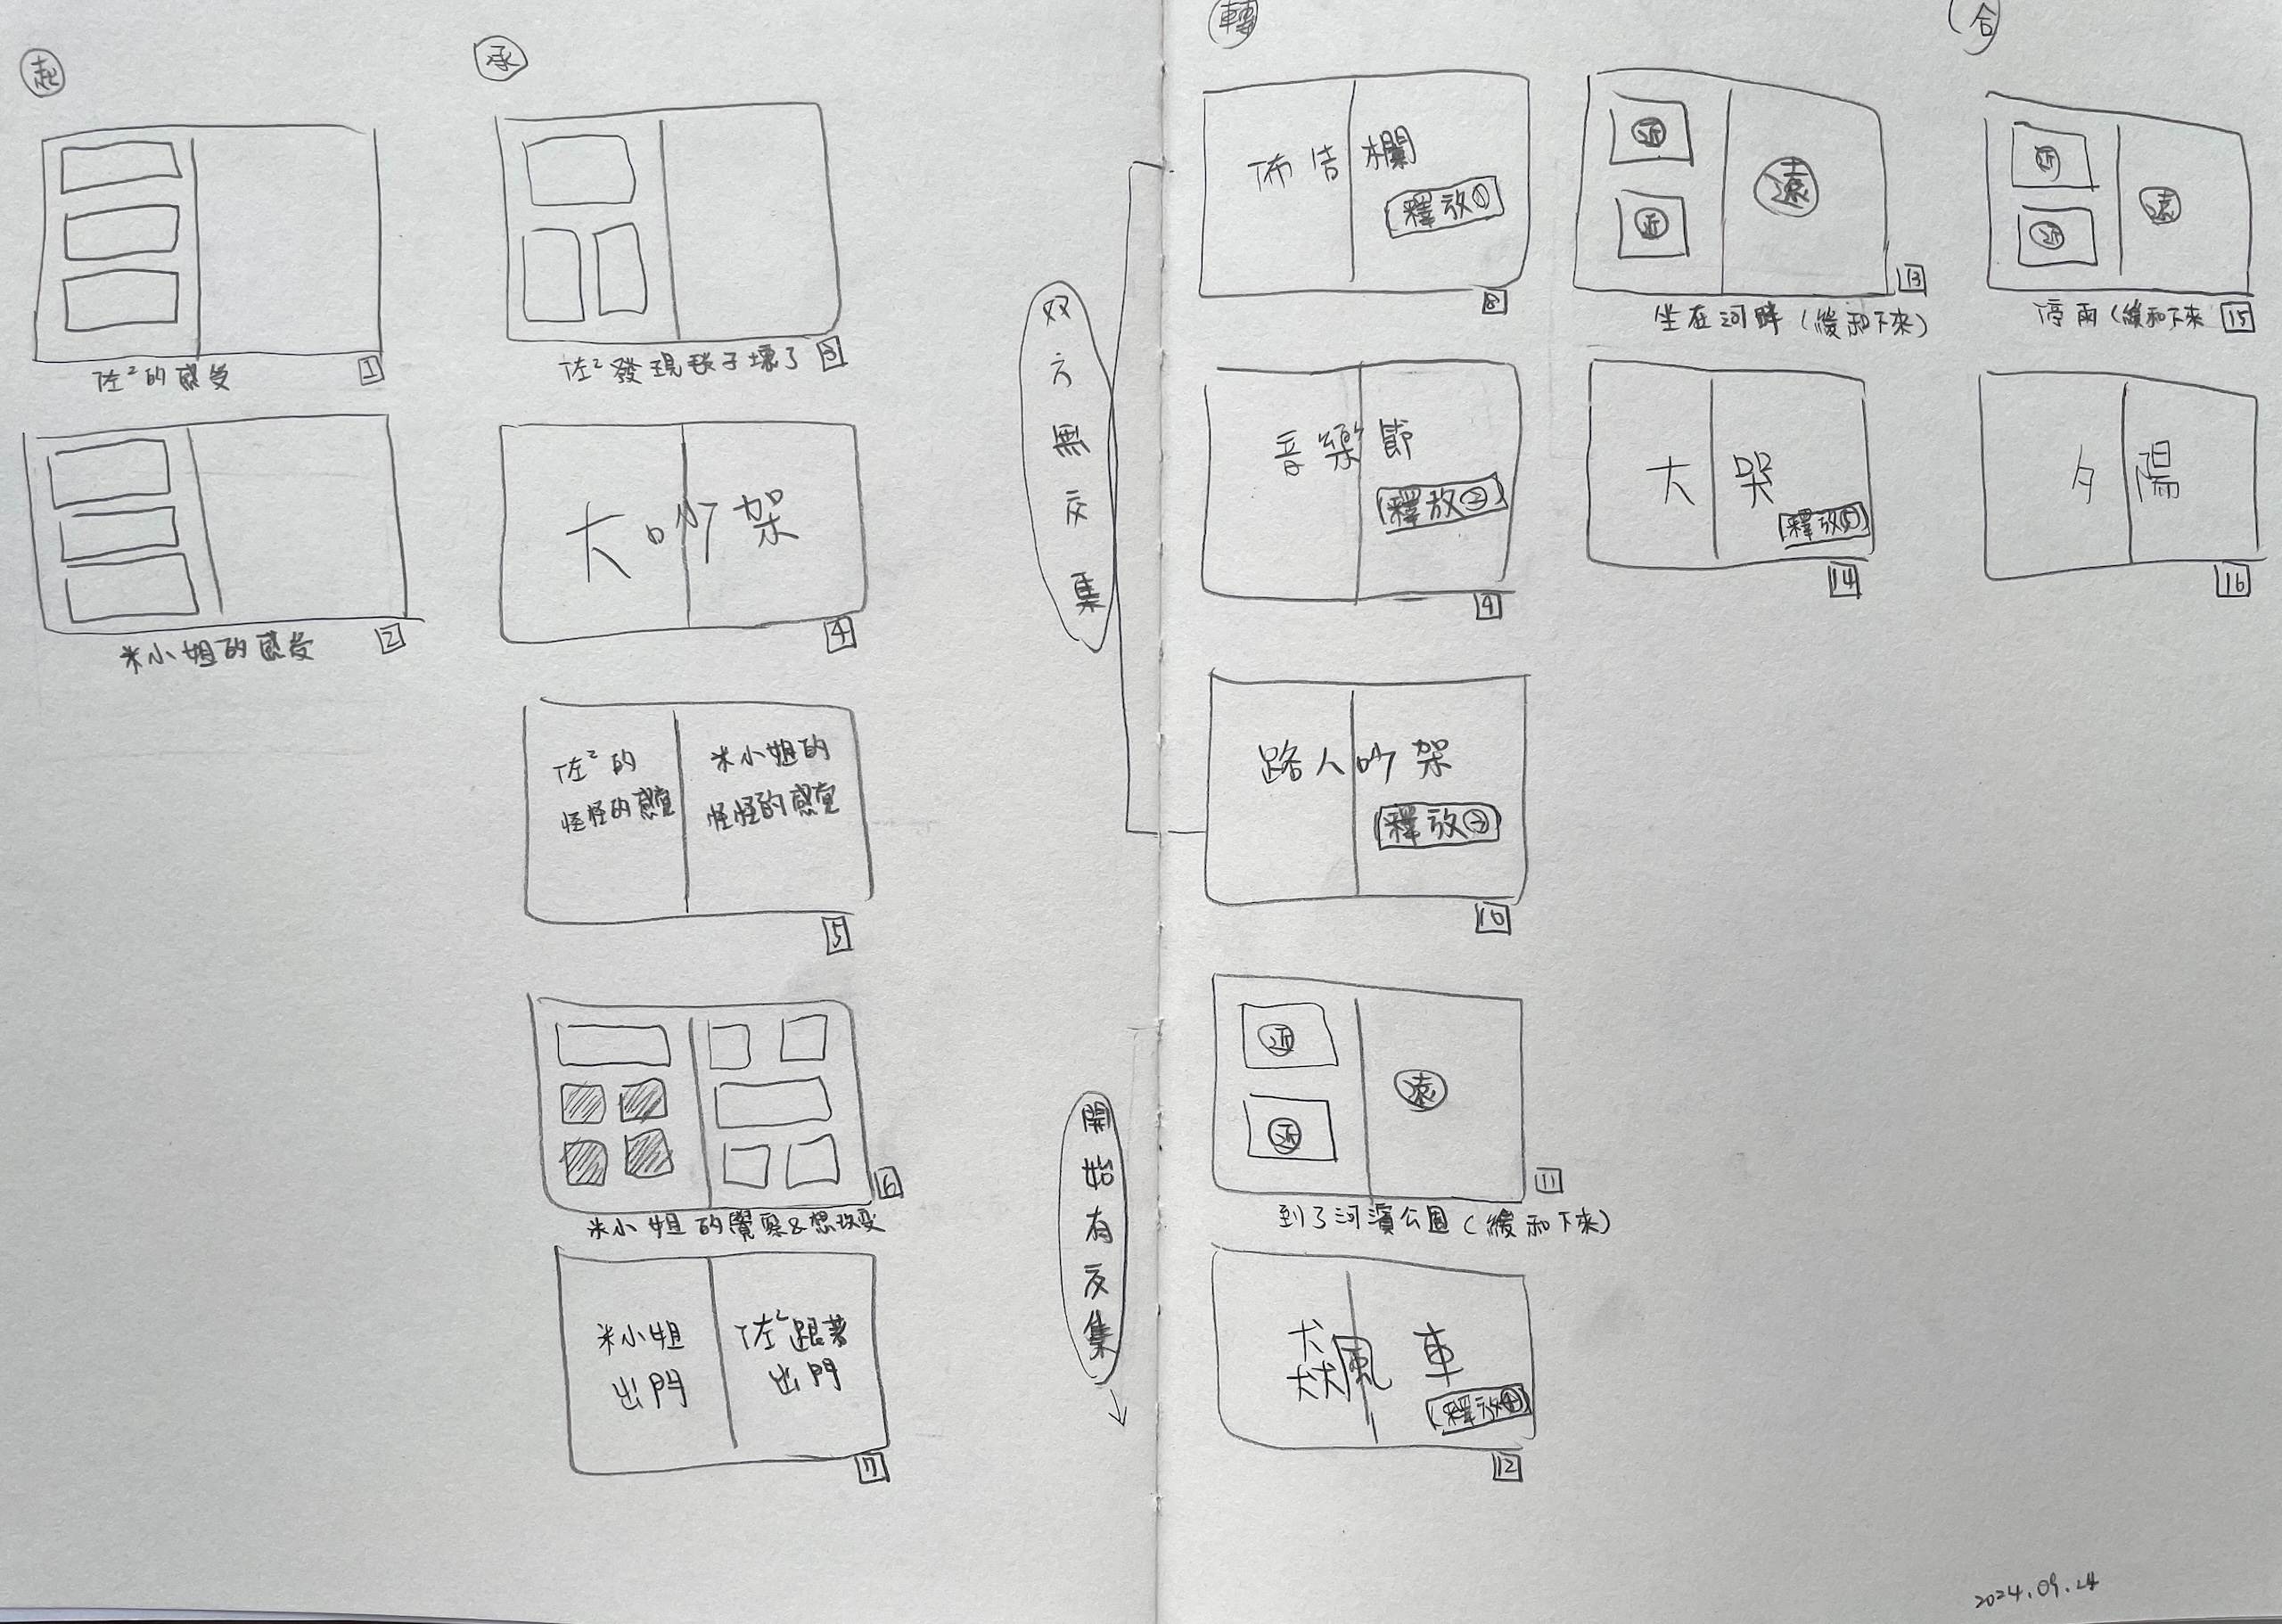 起
佐²的感受
1
米小姐的感受
2
承
佐²發現毯子壞了
3
大吵架
4
佐²的
怪怪的感覺
米小姐的
怪怪的感覺
5
6
米小姐的覺察&想改變
米小姐
出門
佐²跟著
出門
7
双方無交集
開始有交集
轉
佈告欄
釋放①
8
音樂節
釋放②
9
路人吵架
釋放③
10
近
近
遠
11
到了河濱公園(緩和下來)
猋風車
釋放④
12
近
近
遠
13
坐在河畔(緩和下來)
大哭
釋放⑤
14
合
近
近
遠
停雨(緩和下來
15
夕陽
16
2024.09.24